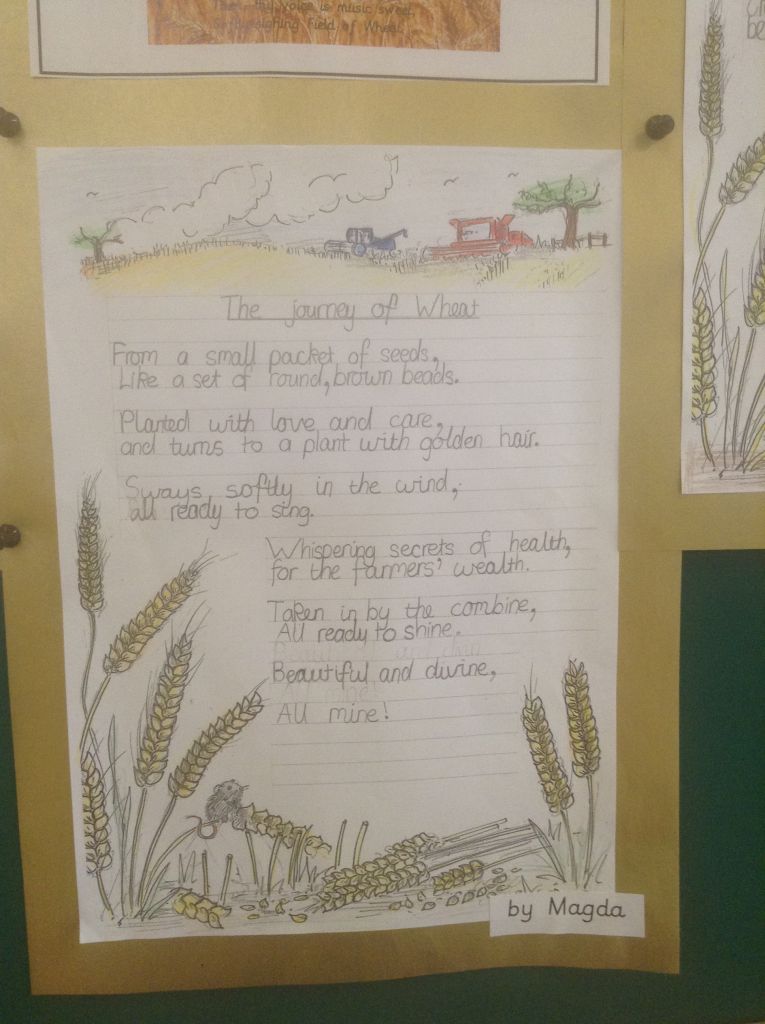 voice is music sweet,
Softly sighing Field of Wheat.
The journey of Wheat
From a small packet of seeds,
Like a set of round, brown beads.
Planted with love and care,
and turns to a plant with golden hair.
Sways softly in the wind,
all ready to sing.
Whispering secrets of health,
for the farmers' wealth.
Taken in by the combine,
All ready to shine.
Beautiful and divine,
All mine!
by Magda